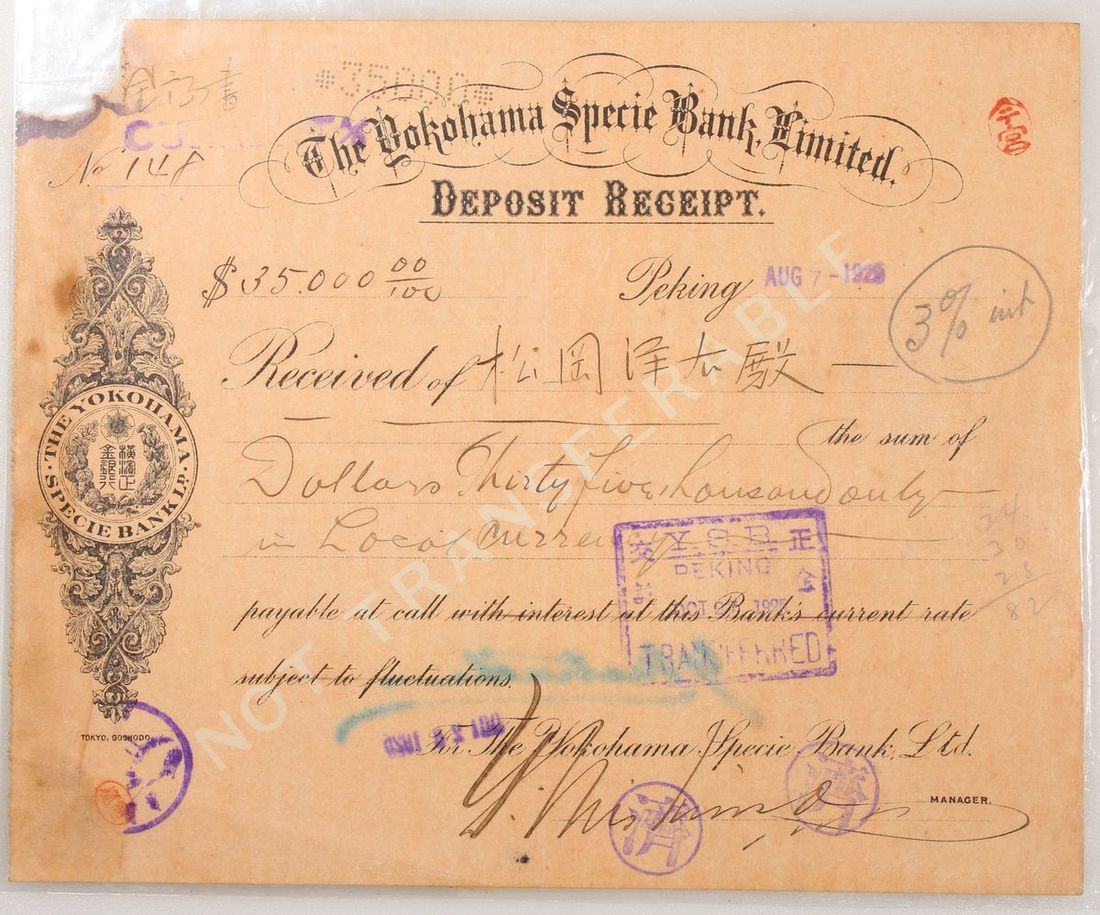 *35000*
The Yokohama Specie Bank, Limited.
No. 148
DEPOSIT RECEIPT.
$35.000 00/100
Peking AUG 7-1925
3% int
Received of 松岡洋右殿
the sum of
Dollars Thirty Five thousand only
in Local Currency
THE YOKOHAMA SPECIE BANK LD.
横濱正金銀行
24
30
28
82
Y.S.B. 正金
PEKING
OCT
TRANSFERRED
payable at call with interest at this Bank's current rate
subject to fluctuations.
NOT TRANSFERABLE
TOKYO, GOSHODO.
For The Yokohama Specie Bank, Ltd.
MANAGER.
済
済